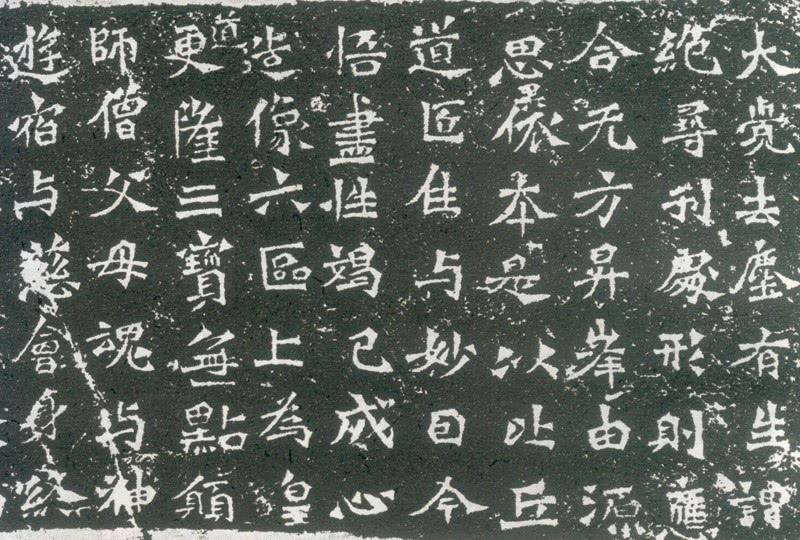 太覺去塵有生謂
絶尋刋處形則應
合无方昇峯由源
思依夲是以比丘
道匠住与妙因今
悟盡性竭己成心
造像六區上為皇
道更隆三寶無點願
師僧父母魂与神
遊宿与慈會身終